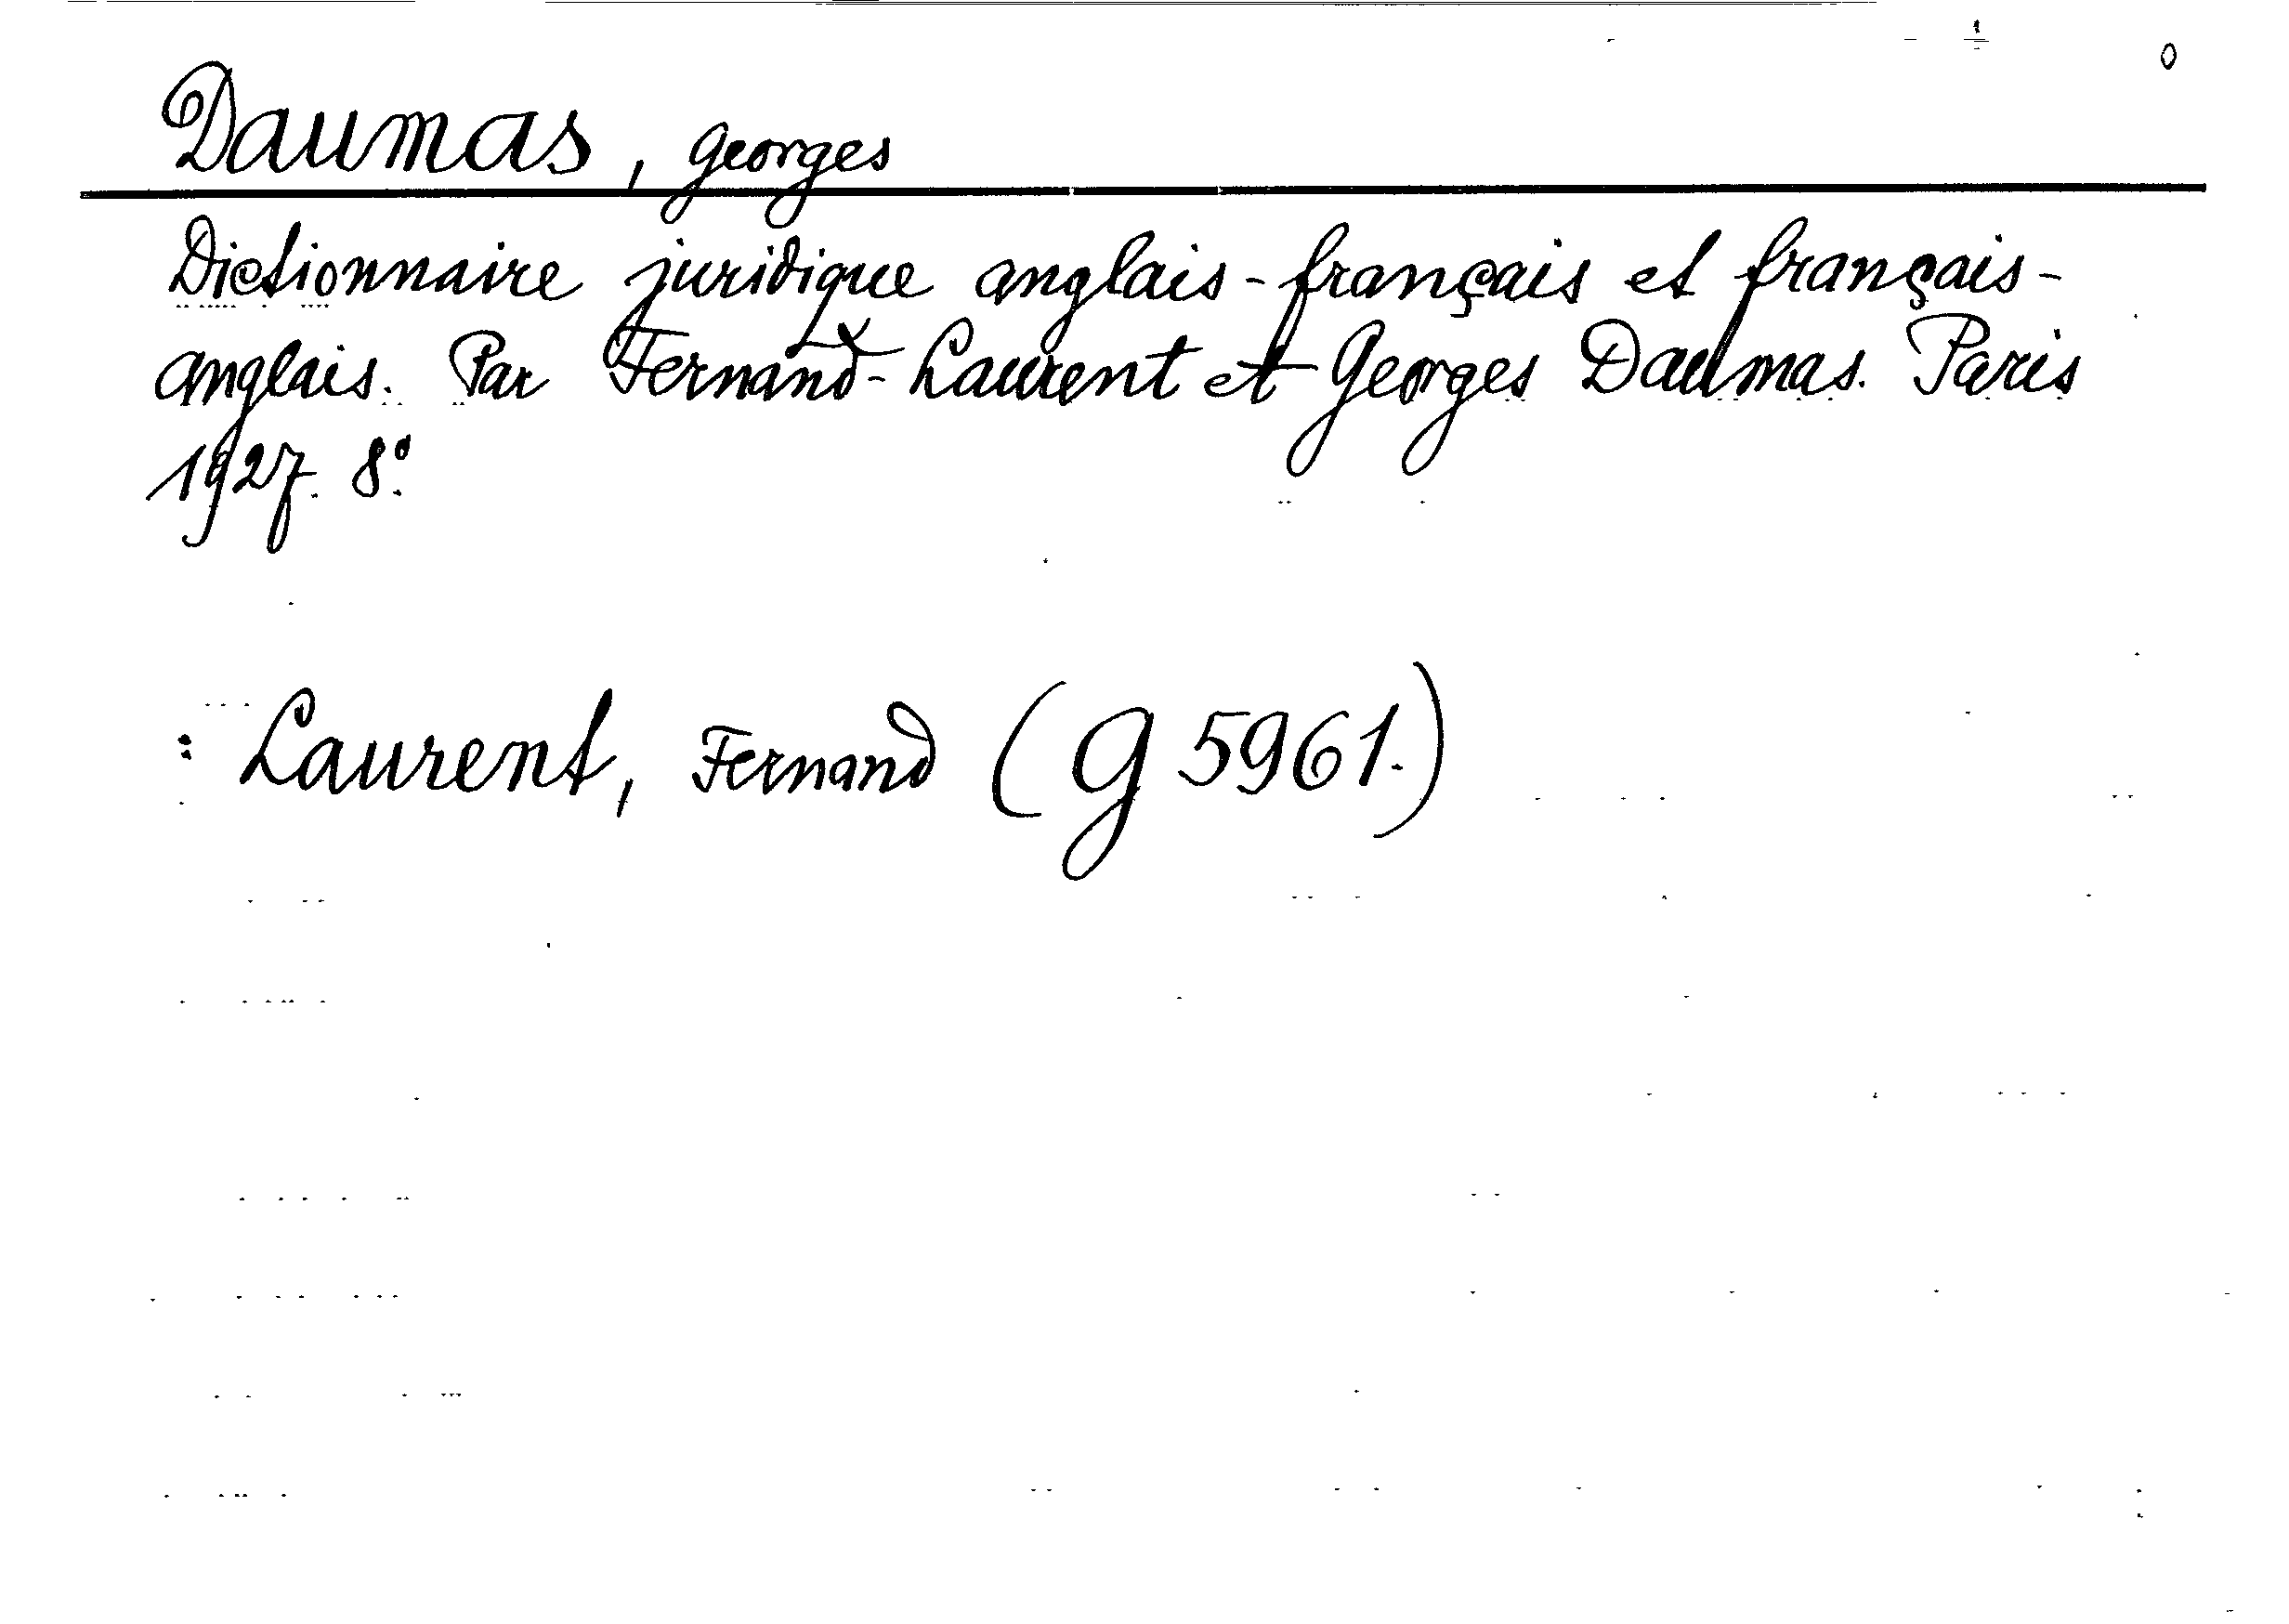 Daumas, Georges
Dictionnaire juridique anglais-français et français-
anglais. Par Fernand-Laurent et Georges Daumas. Paris
1927. 8°.
: Laurent, Fernand (G 5961.)